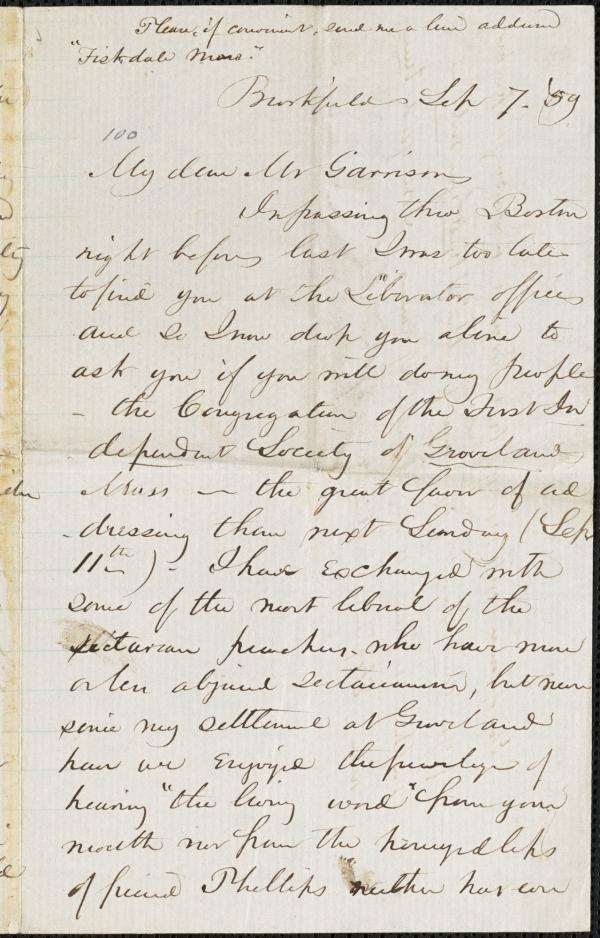 Please, if convenient, send me a line address
"Fiskdale Mass."
Brookfield Sep 7. 59
100
My dear Mr Garrison
In passing thro Boston
night before last I was too late
to find you at the Liberator office
and so I now drop you a line to
ask you if you will do my people
- the Congregation of the First In
dependent Society of Groveland
Mass - the great favor of ad
-dressing them next Sunday (Sep
11th) - I have exchanged with
some of the most liberal of the
sectarian preachers who have more
or less abjured sectarianism, but never
since my settlement at Groveland
have we enjoyed the privilege of
hearing "the living word" from your
mouth nor from the honeyed lips
of friend Phillips neither have we